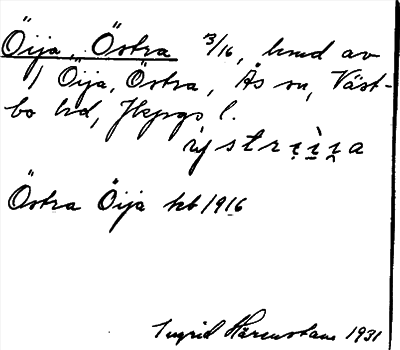 Öija, Östra 3/16, hmd av
1 Öija, Östra, Ås sn, Väst-
bo hd, Jkpgs l.

Östra Öija kb 1916
Ingrid Härenstam 1931